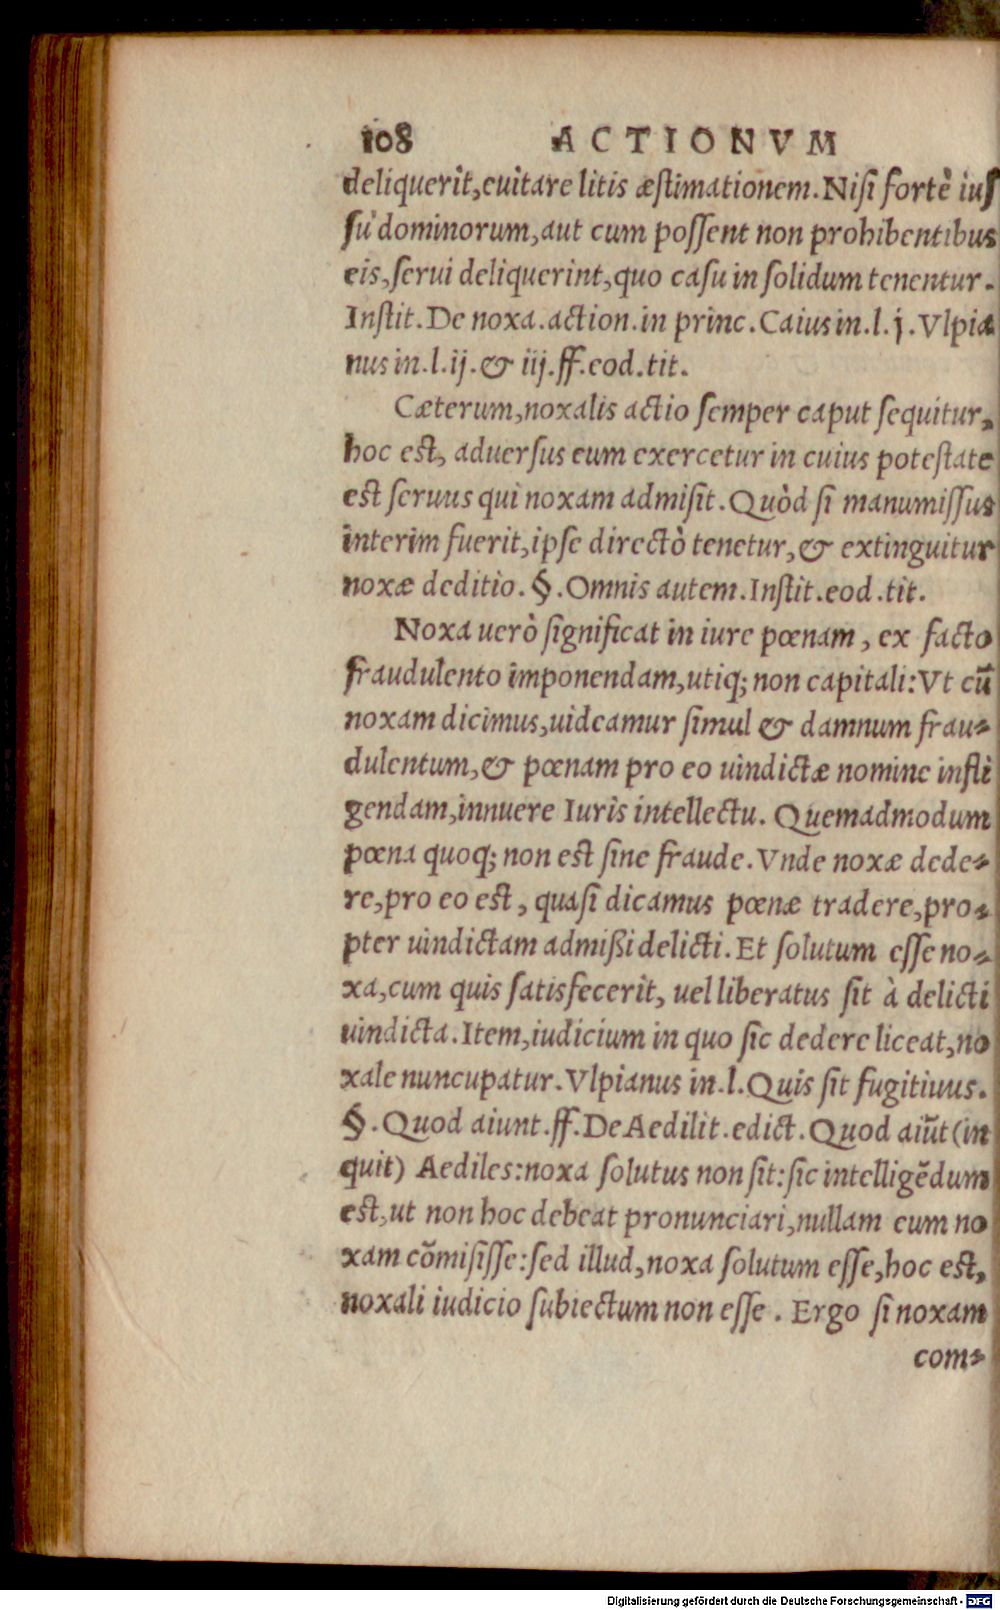 108 ACTIONVM
deliquerit,euitare litis æſtimationem.Niſi fortè iuſ
ſu dominorum,aut cum poſſent non prohibentibus
eis,ſerui deliquerint,quo caſu in ſolidum tenentur.
Inſtit.De noxa.action.in princ.Caius in.l.j.Vlpia
nus in.l.ij.& iij.ff.eod.tit.
Cæterum,noxalis actio ſemper caput ſequitur,
hoc eſt, aduerſus eum exercetur in cuius poteſtate
eſt ſeruus qui noxam admiſit.Quòd ſi manumiſſus
interim fuerit,ipſe directò tenetur,& extinguitur
noxæ deditio.§.Omnis autem.Inſtit.eod.tit.
Noxa uerò ſignificat in iure pœnam, ex facto
fraudulento imponendam,utiq; non capitali:Vt cū
noxam dicimus,uideamur ſimul & damnum frau-
dulentum,& pœnam pro eo uindictæ nomine infli
gendam,innuere Iuris intellectu. Quemadmodum
pœna quoq; non eſt ſine fraude.Vnde noxæ dede-
re,pro eo eſt, quaſi dicamus pœnæ tradere,pro-
pter uindictam admißi delicti.Et ſolutum eſſe no-
xa,cum quis ſatisfecerit, uel liberatus ſit à delicti
uindicta.Item,iudicium in quo ſic dedere liceat,no
xale nuncupatur.Vlpianus in.l.Quis ſit fugitiuus.
§.Quod aiunt.ff.De Aedilit.edict.Quod aiūt(in
quit) Aediles:noxa ſolutus non ſit:ſic intelligēdum
eſt,ut non hoc debeat pronunciari,nullam eum no
xam cōmiſiſſe:ſed illud,noxa ſolutum eſſe,hoc eſt,
noxali iudicio ſubiectum non eſſe. Ergo ſi noxam
com-
Digitalisierung gefördert durch die Deutsche Forschungsgemeinschaft - DFG